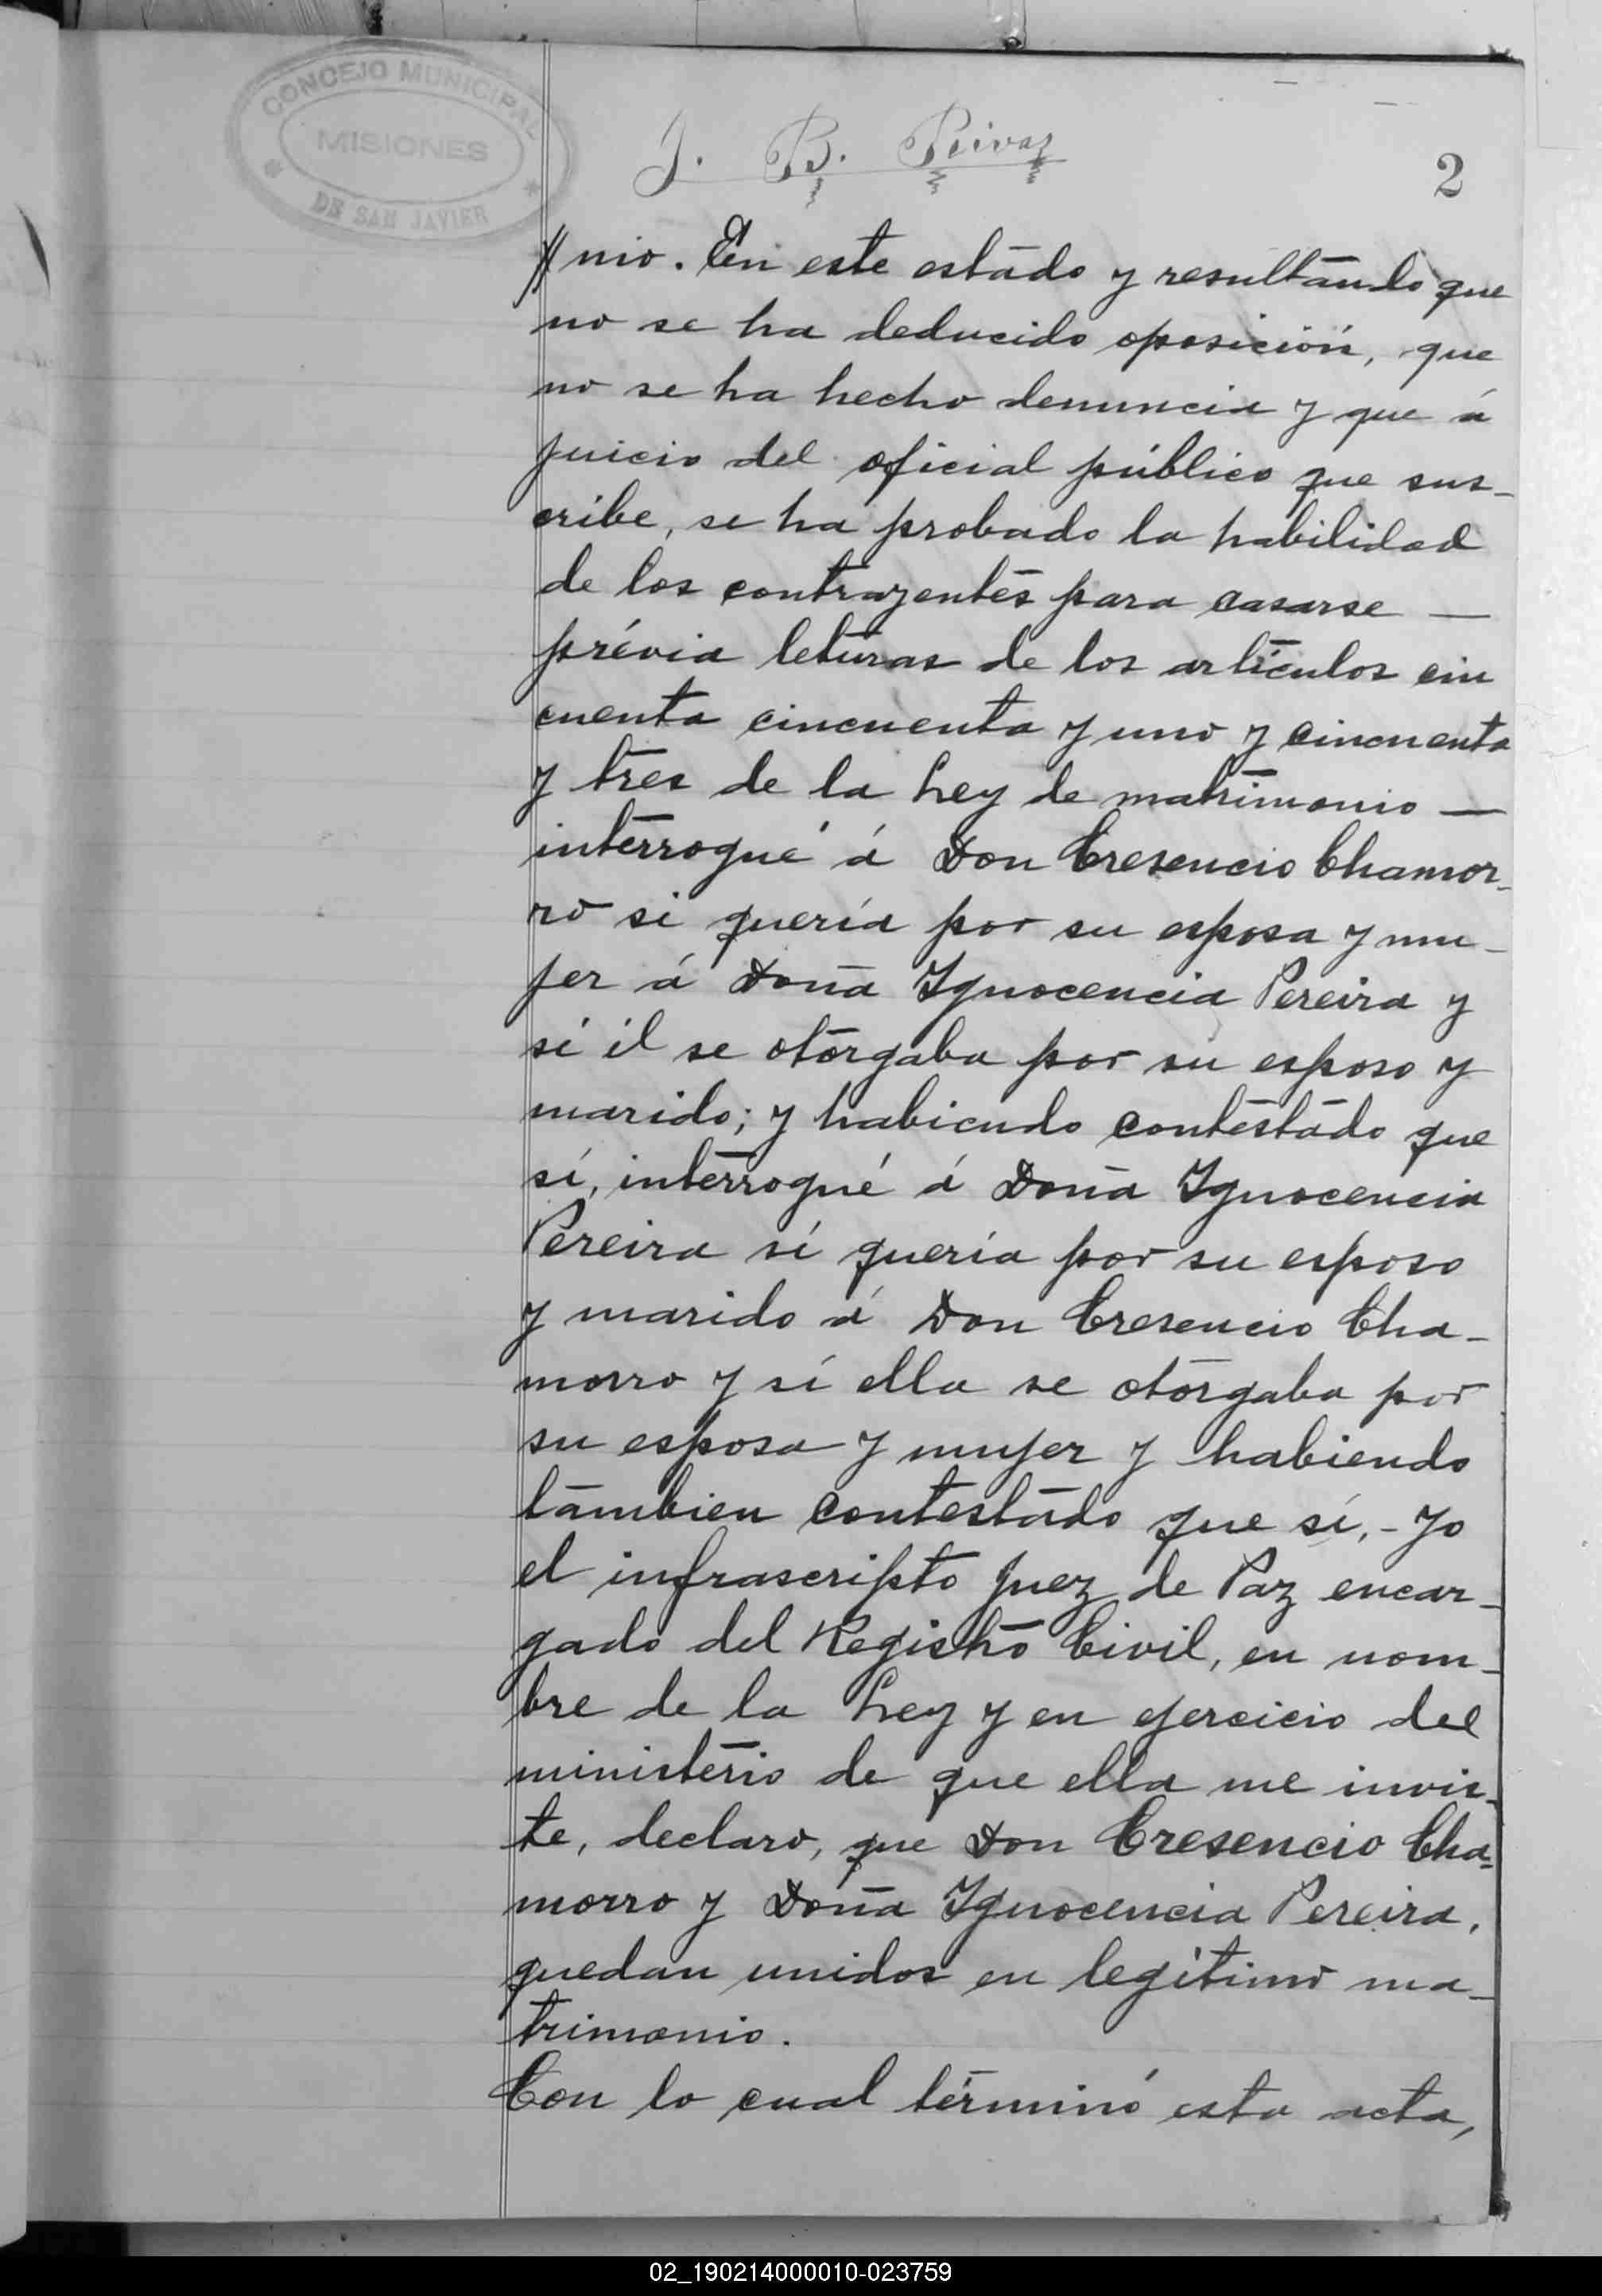 CONCEJO MUNICIPAL
MISIONES
DE SAN JAVIER
J. B.
2
//nio. En este estado y resultando que
no se ha deducido oposición, que
no se ha hecho denuncia y que á
juicio del oficial público que sus-
cribe, se ha probado la habilidad
de los contrayentes para casarse —
prévia leturas de los artículos cin
cuenta cincuenta y uno y cincuenta
y tres de la Ley de matrimonio —
interrogué á Don Cresencio Chamor-
ro si quería por su esposa y mu-
jer á Doña Ygnocencia Pereira y
si él se otorgaba por su esposo y
marido; y habiendo contestado que
sí, interrogué á Doña Ygnocencia
Pereira sí quería por su esposo
y marido á Don Cresencio Cha-
morro y sí ella se otorgaba por
su esposa y mujer y habiendo
tambien contestado que sí, - yo
el infrascripto Juez de Paz encar-
gado del Registro Civil, en nom-
bre de la Ley y en ejercicio del
ministerio de que ella me invis-
te, declaro, que Don Cresencio Cha-
morro y Doña Ygnocencia Pereira,
quedan unidos en legítimo ma-
trimonio.
Con lo cual términó esta acta,
02_190214000010-023759